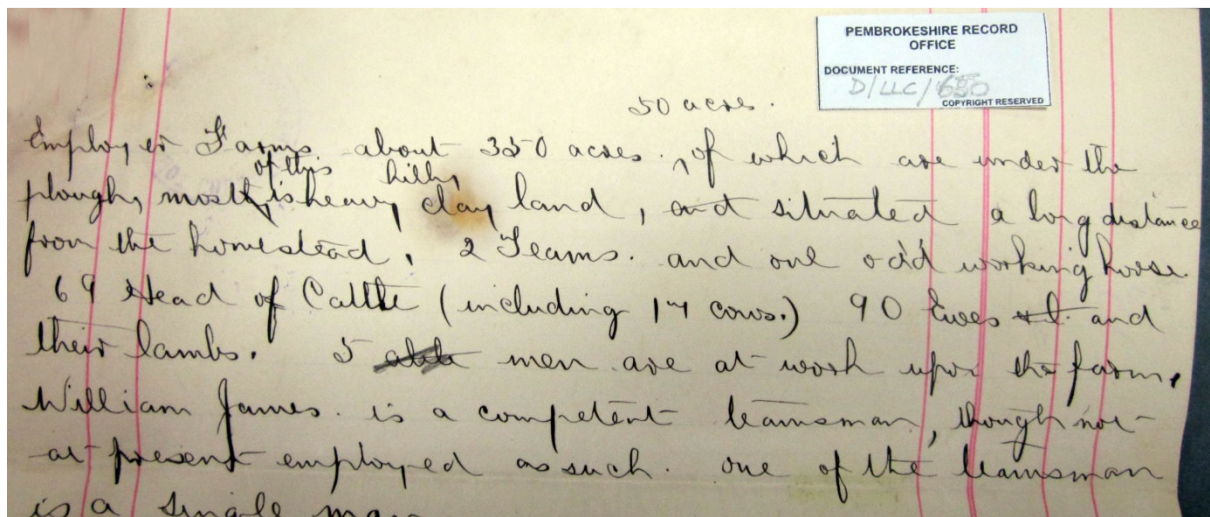 PEMBROKESHIRE RECORD
OFFICE
DOCUMENT REFERENCE:
D/LLC/680
COPYRIGHT RESERVED
50 acres.
Employer Farms about 350 acres, of which are under the
of this hilly
plough, mostly is heavy clay land, and situated a long distance
from the homestead. 2 Teams. and one odd working horse
69 Head of Cattle (including 17 cows.) 90 Ewes & l. and
their lambs. 5 able men are at work upon the farm.
William James. is a competent teamsman, though not
at present employed as such. one of the teamsman
is a single man